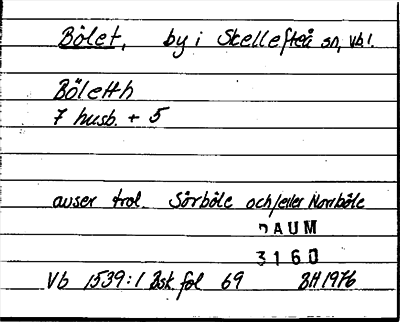 Bölet, by i Skellefteå sn, Vb l.
Böletth
7 husb. + 5
avser trol. Sörböle och/eller Norrböle
DAUM
3160
Vb 1539:1 Bsk. fol 69 BH 1976